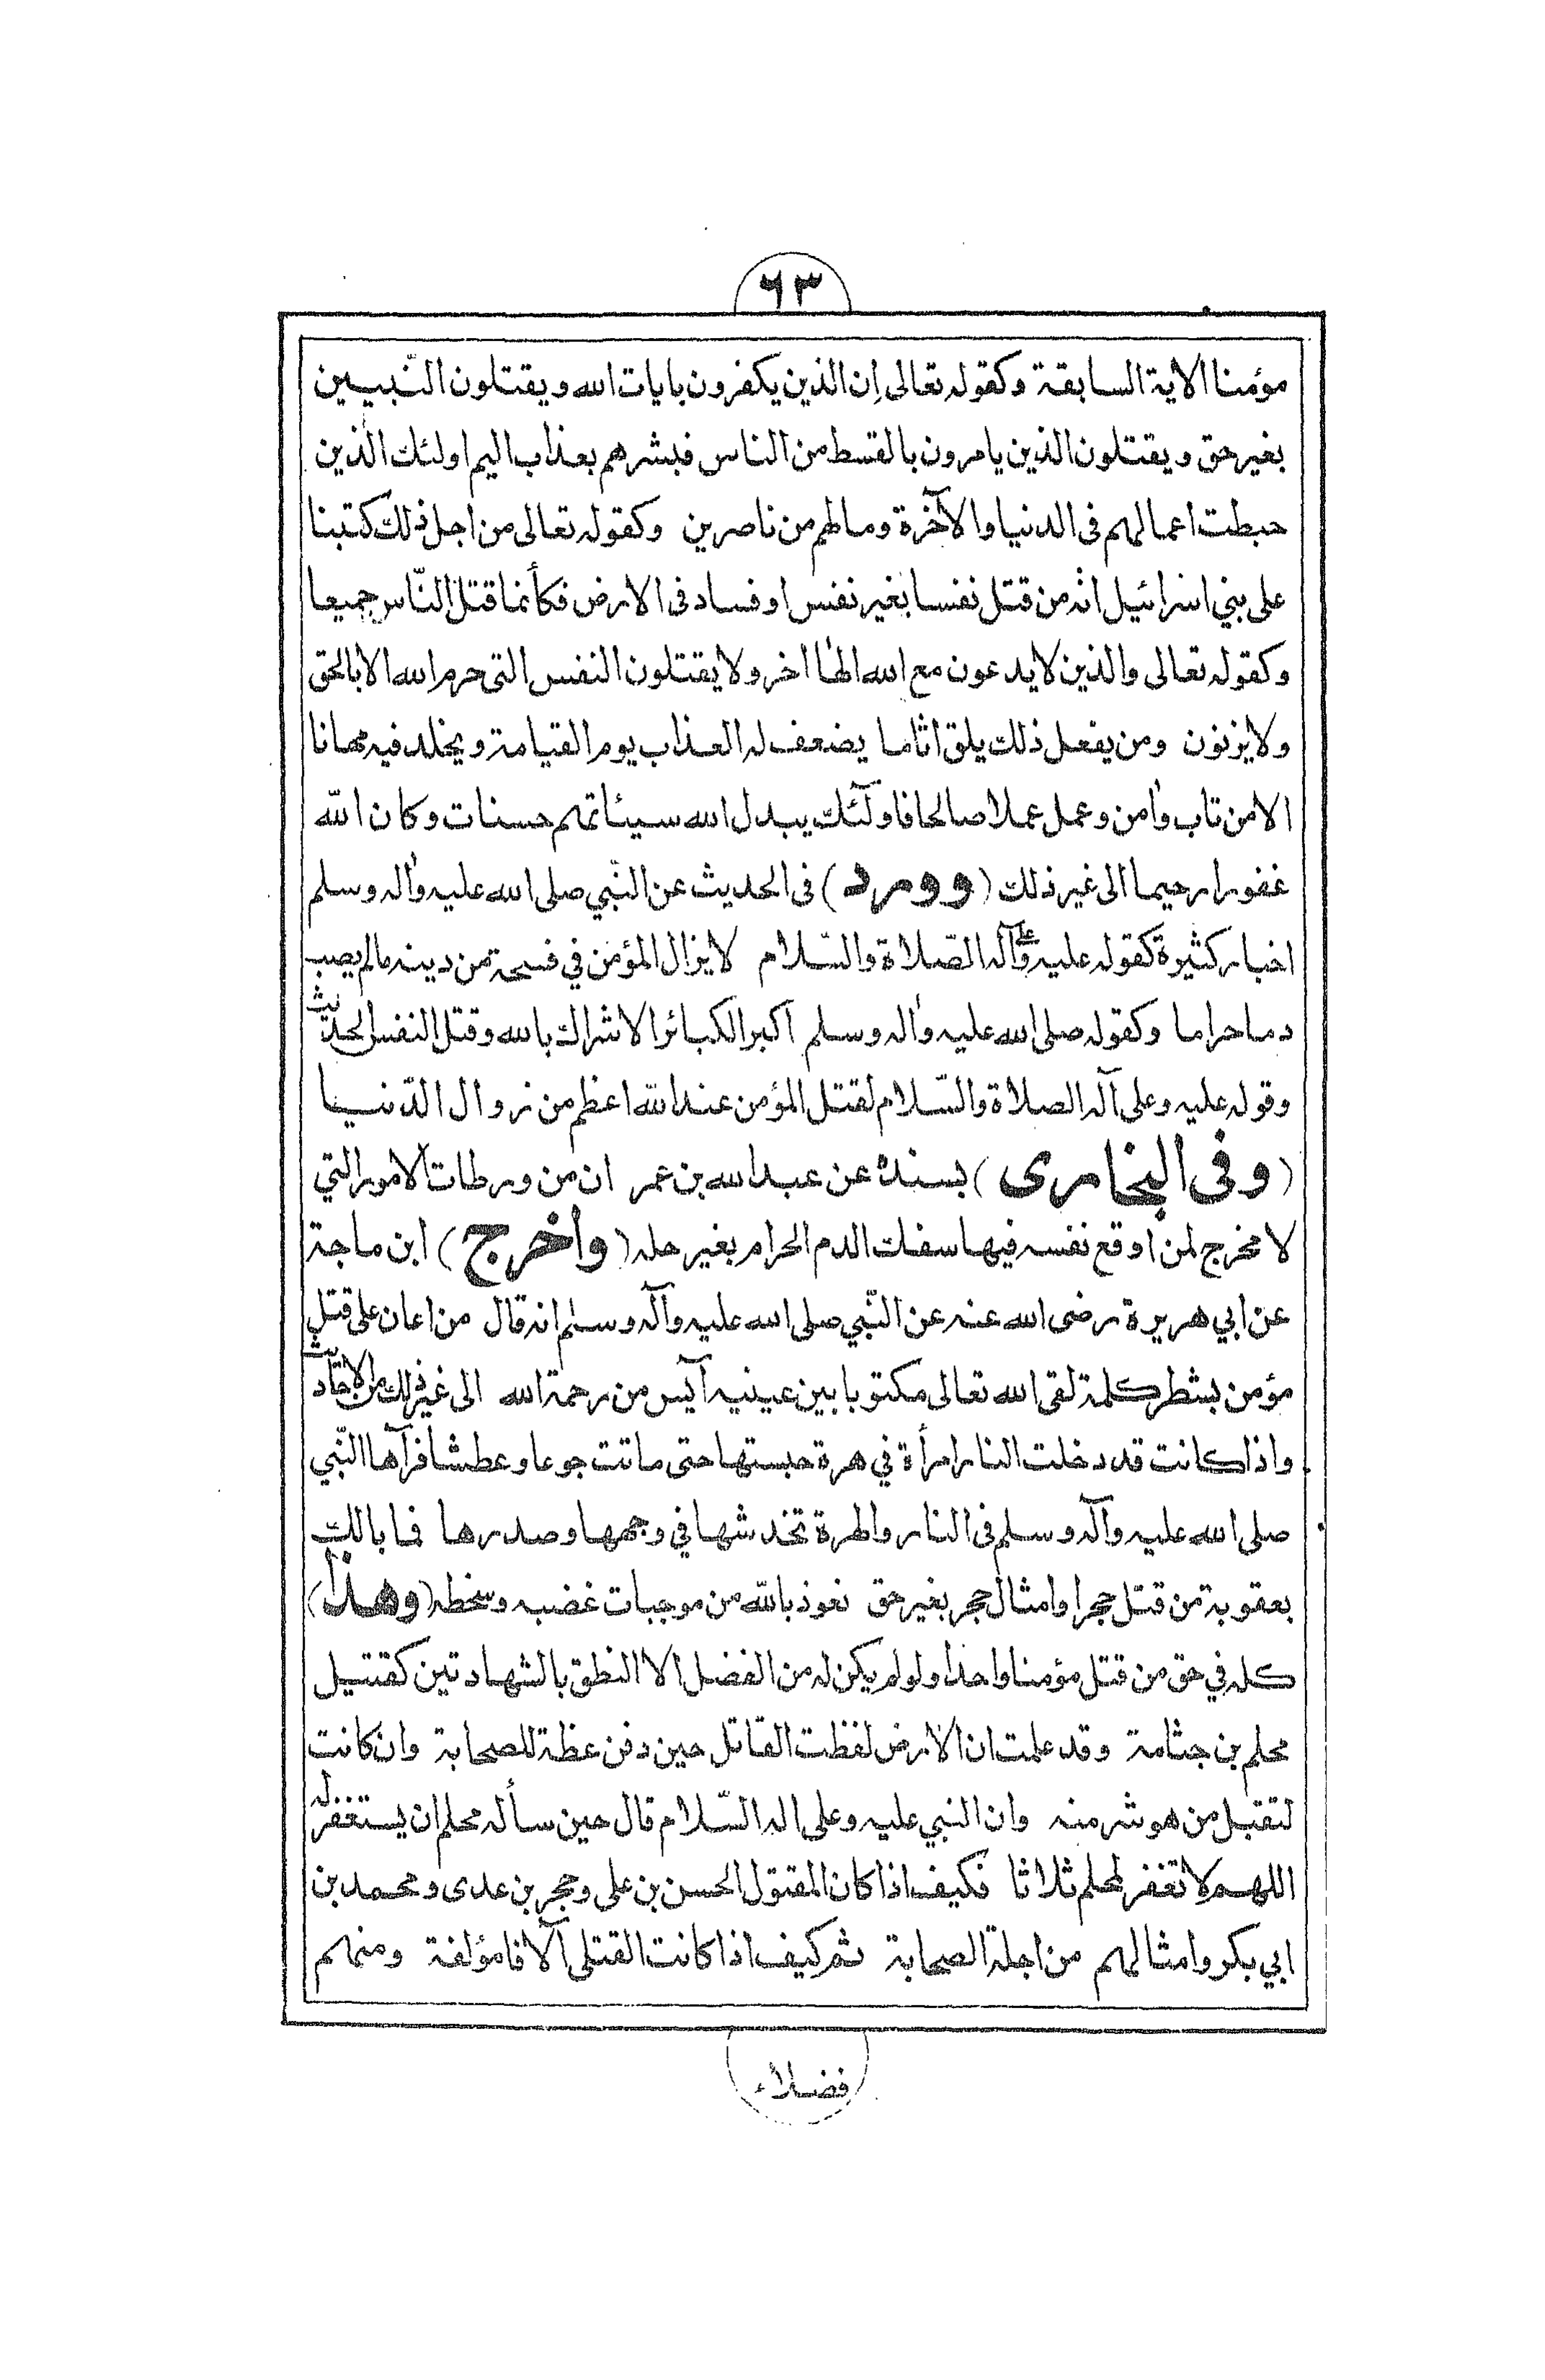 ٦٣
مؤمنا الاية السابقة وكقوله تعالى إن الذين يكفرون بايات الله ويقتلون النّبيين
بغير حق ويقتلون الذين يامرون بالقسط من الناس فبشرهم بعذاب اليم اولئك الّذين
حبطت اعمالهم فى الدنيا والآخرة ومالهم من ناصرين وكقوله تعالى من اجل ذلك كتبنا
على بني اسرائيل انه من قتل نفسا بغير نفس او فساد فى الارض فكأنما قتل النّاس جميعا
وكقوله تعالى والذين لايدعون مع الله الها اخر ولا يقتلون النفس التى حرم الله الا بالحق
ولا يزنون ومن يفعل ذلك يلق اثاما يضعف له العذاب يوم القيامة ويخلد فيه مهانا
الا من تاب وامن وعمل عملا صالحا فاولئك يبدل الله سيئاتهم حسنات وكان الله
غفورا رحيما الى غير ذلك (وورد) فى الحديث عن النّبي صلى الله عليه واله وسلم
اخبار كثيرة كقوله عليه وعلى آله الصّلاة والسّلام لا يزال المؤمن في فسحة من دينه مالم يصب
دما حراما وكقوله صلى الله عليه واله وسلم اكبر الكبائر الاشراك بالله وقتل النفس الحديث
وقوله عليه وعلى آله الصلاة والسّلام لقتل المؤمن عند الله اعظم من زوال الدّنيا
(وفى البخارى) بسنده عن عبد الله بن عمر ان من ورطات الامور التي
لا مخرج لمن اوقع نفسه فيها سفك الدم الحرام بغير حله (وأخرج) ابن ماجة
عن ابي هريرة رضى الله عنه عن النّبي صلى الله عليه وآله وسلم انه قال من اعان على قتل
مؤمن بشطر كلمة لقى الله تعالى مكتوبا بين عينيه آيس من رحمة الله الى غير ذلك من الاحاديث
واذا كانت قد دخلت النار امرأة في هرة حبستها حتى ماتت جوعا وعطشا فرآها النّبي
صلى الله عليه وآله وسلم فى النار والهرة تخدشها في وجهها وصدرها فما بالك
بعقوبة من قتل حجرا وامثال حجر بغير حق نعوذ بالله من موجبات غضبه وسخطه (وهذا)
كله في حق من قتل مؤمنا واحدا ولو لم يكن له من الفضل الا النطق بالشهادتين كقتيل
محلم بن جثامة وقد علمت ان الارض لفظت القاتل حين دفن عظة للصحابة وان كانت
لتقبل من هو شر منه وان النبي عليه وعلى اله السّلام قال حين سأله محلم ان يستغفر له
اللهم لا تغفر لمحلم ثلاثا فكيف اذا كان المقتول الحسن بن على وحجر بن عدى ومحمد بن
ابي بكر وامثالهم من اجلة الصحابة ثم كيف اذا كانت القتلى آلافا مؤلفة ومنهم
فضلاء